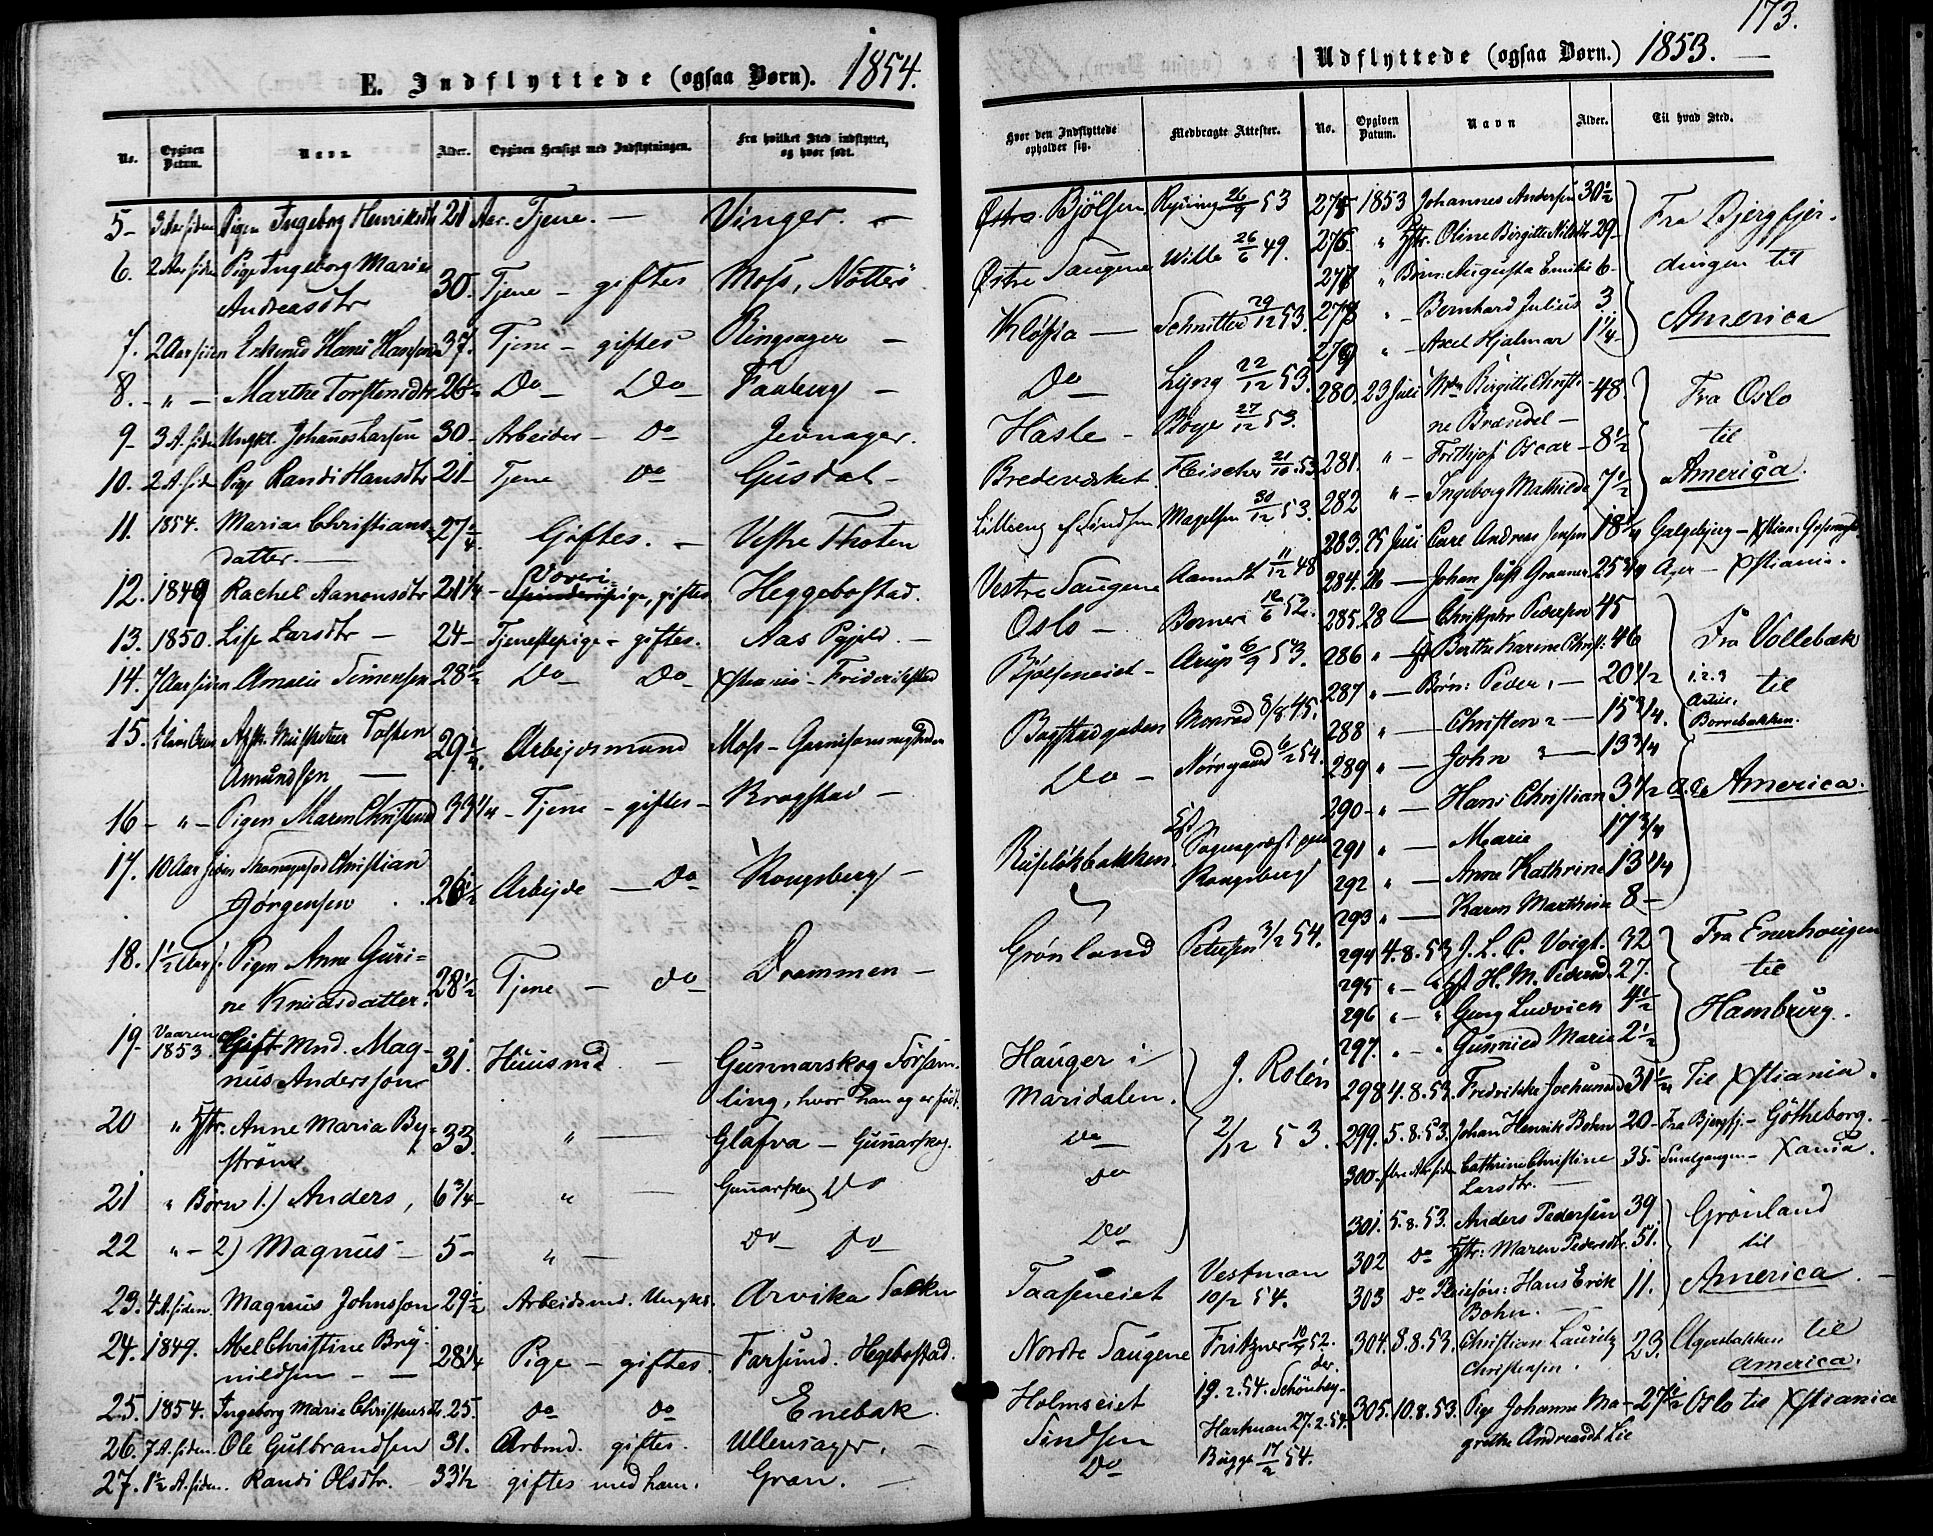 E. Indflyttede (ogsaa Børn). 1854.
No. Opgiven Datum. Navn. Alder. Opgiven Hensigt med Indflytningen. Fra hvilket Sted indflyttet, og hvor født.
5- 3 Aar siden Pigen Ingeborg Henriksdtr 21 Aar. Tjene. — Vinger. —
6. 2 Aar siden Pige Ingeborg Marie
Andreasdtr 30. Tjene — giftes Moss, Nötterö
7. 2 Aar siden Enkemd Hans Hansen 37. Tjene — giftes Ringsager —
8. - " — Marthe Torstensdtr 26½ Do Do Faaberg —
9- 3 A. siden Ungkl. Johannes Larsen 30- Arbeider — Do Jevnager.
10. 2 A. siden Pige Randi Hansdtr 21- Tjene Do Gusdal -
11. 1854. Maria Christians-
datter. — 27¼. Giftes. — Vestre Thoten
12. 1849 Rachel Aanonsdtr 21¼ - Væveri pige, giftes Heggebostad.
13. 1850. Lise Larsdtr — 24- Tjenestepige - giftes. Aas Pgjeld. —
14. 7 Aar siden Amalie Simensen 28½ Do Do Xstiania - Frideriksstad
15. Aftk. Musketeer Tosten
Amundsen — 29¼. Arbejdsmand Moss - Garnisonsmenigheden
16 - " - Pigen Maren Christensd 33¼ - Tjene - giftes - Krogstad —
17. 10 Aar siden Skomagersvd Christian
Jørgensen 26½ Arbejde — Do Kongsberg —
18. 1½ Aar s. Pigen Anne Guri=
ne Knudsdatter. 28½ Tjene — do Drammen —
19. Vaaren 1853 Gift Mnd. Mag-
nus Andersson 31. Huusmd — Gunnarskog Forsam-
ling, hvor han og er født.
20 " Hstr. Anne Maria By=
ström 33. " — Glafva — Gunarskog.
21 " Børn 1.) Anders, 6¾- " — Gunarskog Do
22 " - 2) Magnus — 5- " — Do Do
23. 4 A. siden. Magnus Johnsson 29½ Arbeidsmd. Ungkl. Arvika Sokken
24. 1849. Abel Christine Bry-
nildsen — — 28¼ Pige — giftes. Farsund. Hegebostad.
25. 1854. Ingeborg Marie Christensdtr 25. do do Enebak.
26. 7 A. siden. Ole Gulbrandsen 31. Arbmd. giftes. Ullensager. —
27. 1½ A. siden. Randi Olsdtr. 33½ giftes med ham. Gran. —
173.
Udflyttede (ogsaa Børn.) 1853. —
Hvor den Indflyttede opholder sig. Medbragte Attester. No. Opgiven Datum. Navn Alder. Til hvad Sted.
Østre Bjölsen Ryning 26/9 53
Østre Saugene Wille 26/6 49.
Klosta — Schnitler 29/12 53.
Do — Lyng 22/12 53.
Hasle — Böye 27/12 53.
Bredeverket Fleischer 21/10. 53.
Lilleeng f Sindsen Magelsen 30/12 53.
Vestre Saugene Aamodt 11/12 48
Oslo — Borner 12/6 52.
Bjølseneiet — Arup 6/9 53.
Bogstadgaden Monrad 8/8 45.
Do — Nörregaard 6/2 54.
Ruseløkbakken Sognepræst paa
Kongsberg
Grønland Petersen 3/2 54.
Hauger i
Maridalen. J. Rolén
Do 2/12 53.
Do
Do
Taaseneiet Vestman
10/2 54.
Nordre Saugene Fritzner 10/4 52.
Holmseiet 19. 2. 54. Schönhey-
der.
Sindsen Hartman 27. 2. 54.
Do Bugge 17/2 54.
275 1853 Johannes Andersen 30½ Fra Bjergfjer-
276. " Hstr. Oline Birgitte Nilsdtr 29- dingen til
277 " Børn: Augusta Emilie 6- America
278 " - Bernhard Julius 3
279 " - Axel Hjalmar 1¼
280. 23 Juli Mdm Birgitte Christi-
ne Brændel — 48. Fra Oslo
281. " - Frithjof Oscar - 8½ til
282 " - Ingeborg Mathilde 7½ America.
283. 25 Juli Carl Andreas Jensen 18¼ Galgebjerg - Xstiania
284. 26 — Johan Just Graaner 25¾ Ager — Xstiania.
285. 28 — Christopher Pedersen 45 Fra Vollebæk
286 " — Hst Berthe Karine Christ: 46
287 " — Børn: Peder, — 20½ til
288 " — Christen — 15¾. Borrebakken.
289 " — John — 13¾
290 - " — Hans Christian 3½ America.
291 " — Marie 17¾
292 " — Anne Kathrine 13¼
293 " — Karen Mathea 8-
294 4.8.53 J. L. P. Voigt. 32 Fra Enerhougen
295 " - Hst H. M. Pedersd. 27. til
296 " - " Georg Ludvich 4½ Hamburg.
297. " - " Gunnied Marie 2½
298 4.8.53. Fredrikke Jochumsd 31½ Til Xstiania.
299. 5.8.53. Johan Henrik Bohn 20- Fra Bjergfj. - Götheborg.
300. Cathrine Christine
Larsdtr. — 35. Xania.
301. 5.8.53. Anders Pedersen 39 Grönland
302 Do Hstr: Maren Pedersdtr. 51. til
303 Do Pleiesøn: Hans Erik
Bohn. — 11. America. —
304. 8.8.53. Christian Lauritz
Christensen. 23. Agersbakken til
America.
305. 10.8.53. Pige Johanne Ma-
grethe Andreasdt Lie 27½ Oslo til Xstiania